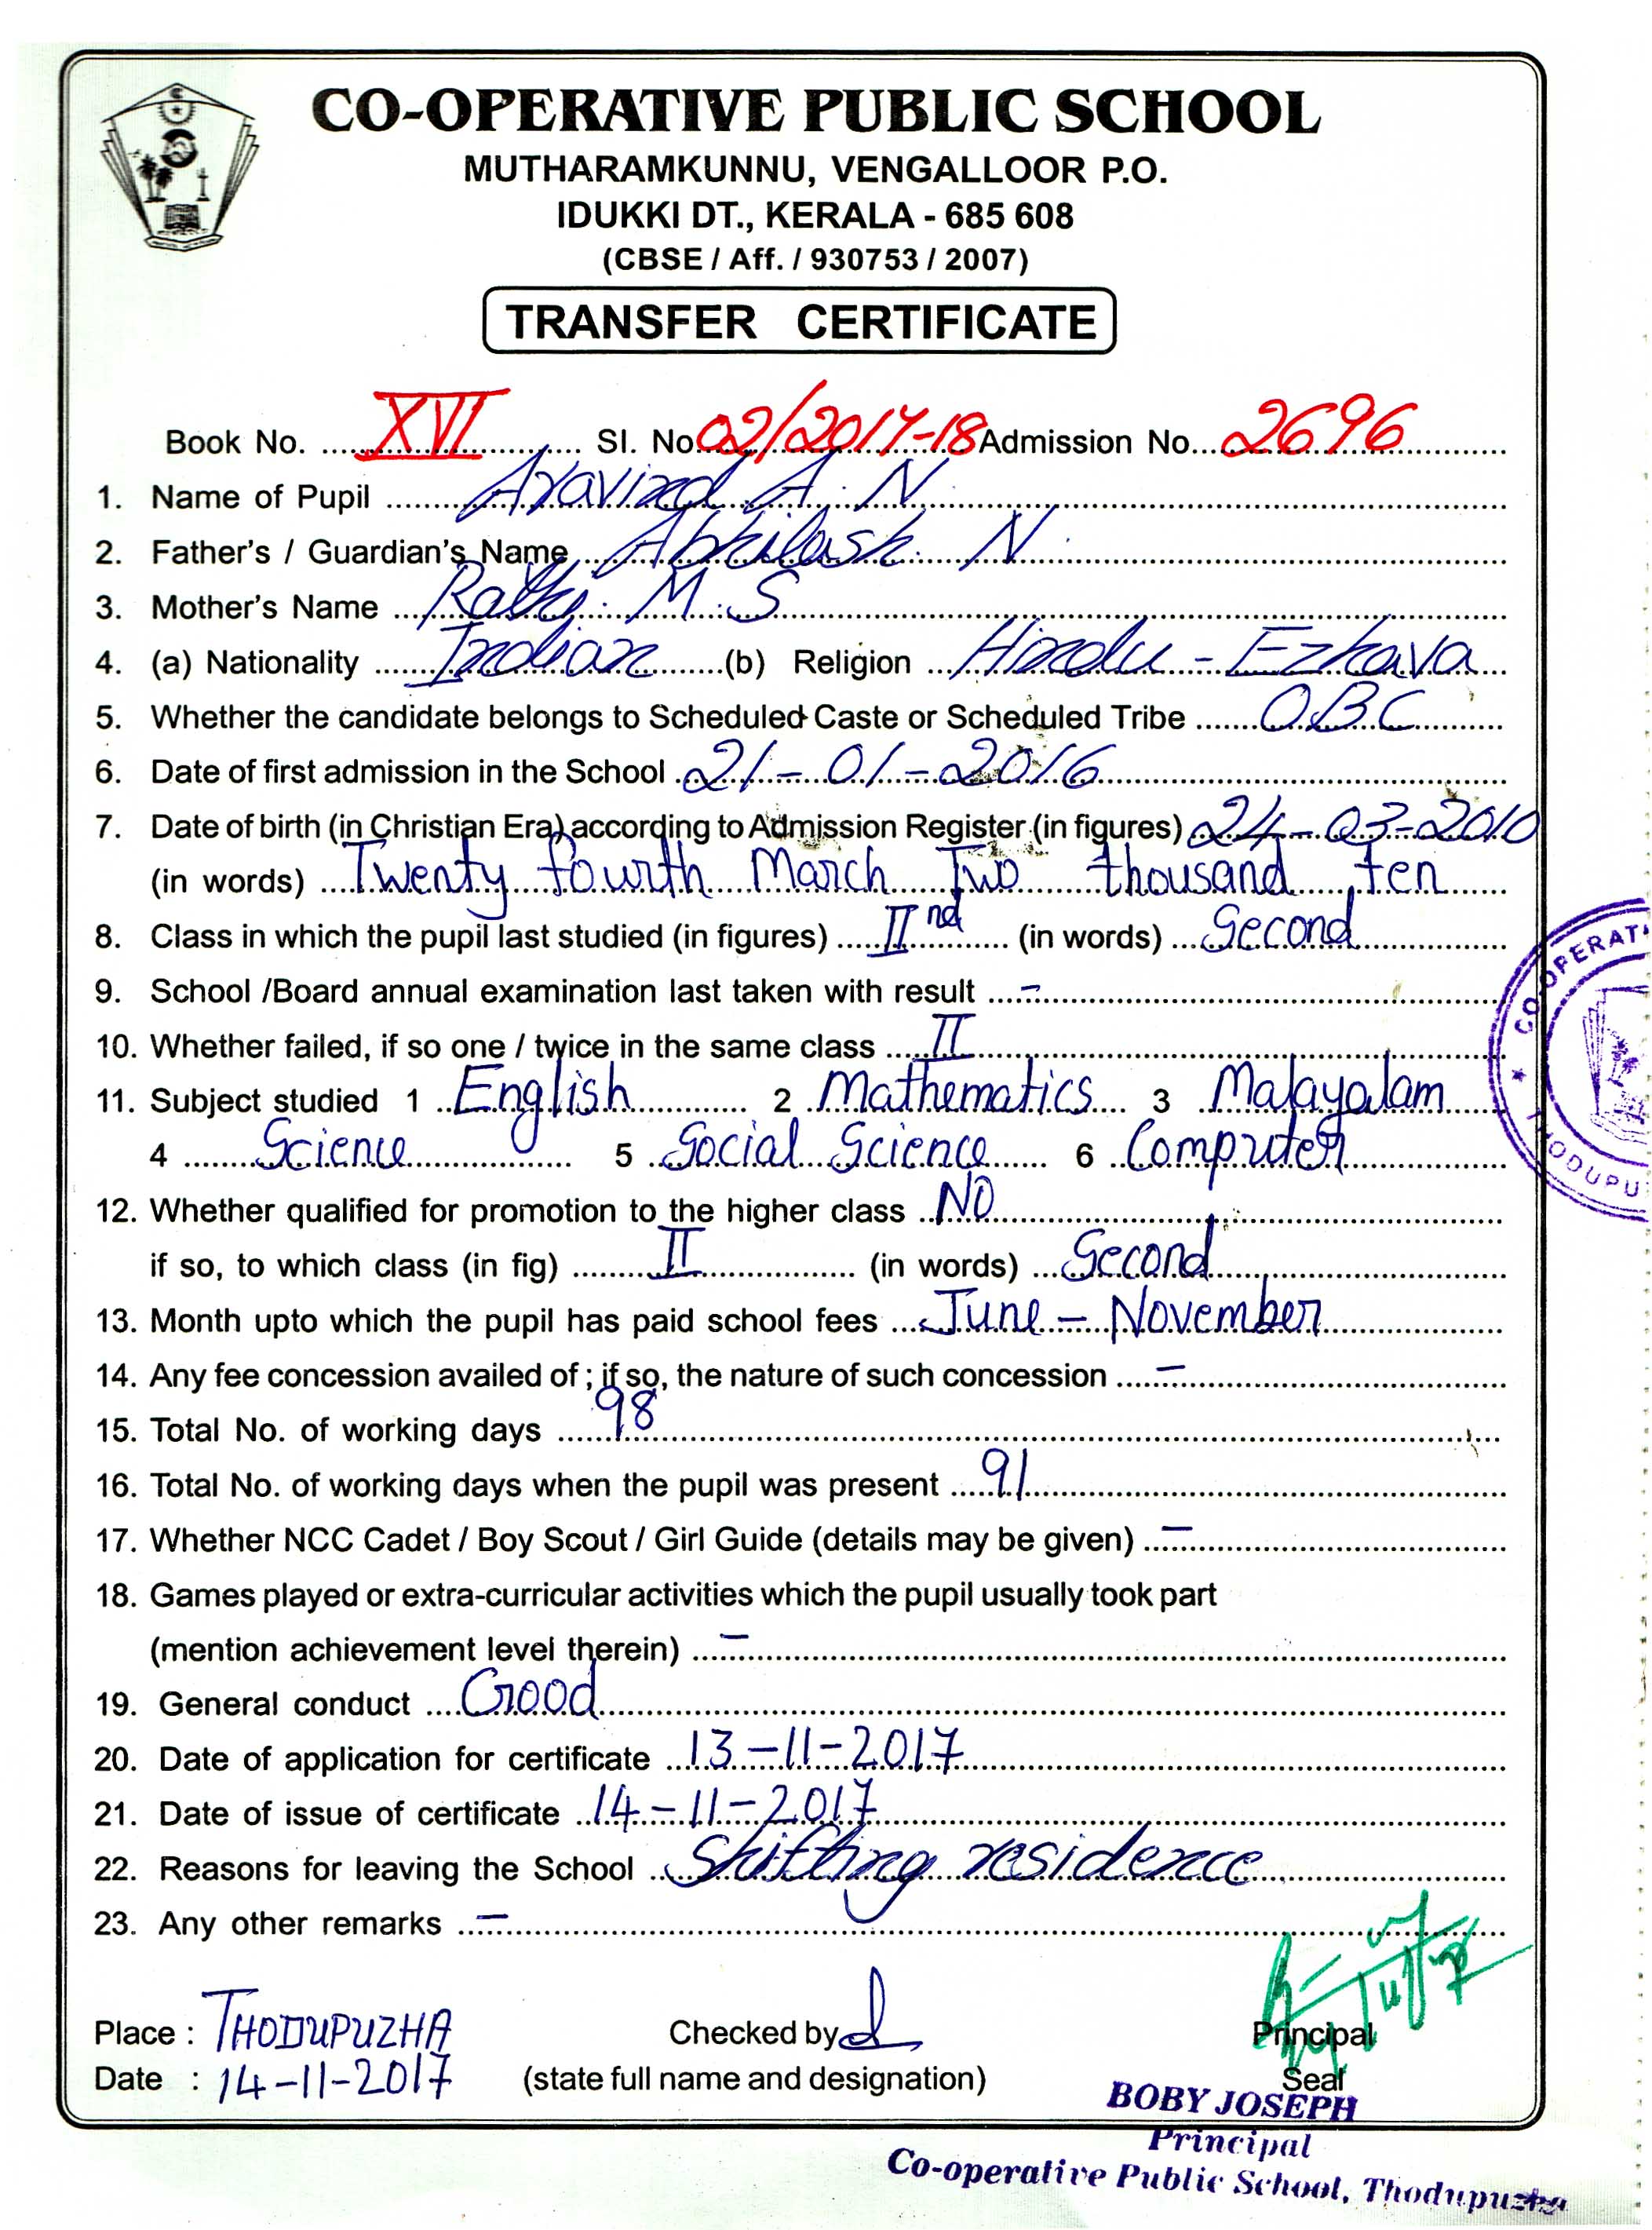 CO-OPERATIVE PUBLIC SCHOOL
MUTHARAMKUNNU, VENGALLOOR P.O.
IDUKKI DT., KERALA - 685 608
(CBSE / Aff. / 930753 / 2007)
TRANSFER CERTIFICATE
Book No. XVI Sl. No 02/2017-18 Admission No. 2696
1. Name of Pupil Aravind A. N
2. Father's / Guardian's Name Abhilash N
3. Mother's Name Rathy. M.S
4. (a) Nationality Indian (b) Religion Hindu - Ezhava
5. Whether the candidate belongs to Scheduled Caste or Scheduled Tribe OBC
6. Date of first admission in the School 21-01-2016
7. Date of birth (in Christian Era) according to Admission Register (in figures) 24-03-2010
(in words) Twenty fourth March Two thousand ten
8. Class in which the pupil last studied (in figures) II nd (in words) Second
9. School /Board annual examination last taken with result -
10. Whether failed, if so one / twice in the same class II
11. Subject studied 1 English 2 Mathematics 3 Malayalam
4 Science 5 Social Science 6 Computer
12. Whether qualified for promotion to the higher class NO
if so, to which class (in fig) II (in words) Second
13. Month upto which the pupil has paid school fees June - November
14. Any fee concession availed of ; if so, the nature of such concession -
15. Total No. of working days 98
16. Total No. of working days when the pupil was present 91
17. Whether NCC Cadet / Boy Scout / Girl Guide (details may be given) -
18. Games played or extra-curricular activities which the pupil usually took part
(mention achievement level therein) -
19. General conduct Good
20. Date of application for certificate 13-11-2017
21. Date of issue of certificate 14-11-2017
22. Reasons for leaving the School Shifting residence
23. Any other remarks -
Place : THODUPUZHA Checked by Principal
Date : 14-11-2017 (state full name and designation) Seal
BOBY JOSEPH
Principal
Co-operative Public School, Thodupuzha
CO-OPERATI
THODUPU